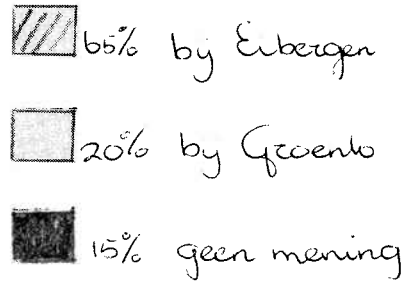 65% bij Eibergen
20% bij Groenlo
15% geen mening